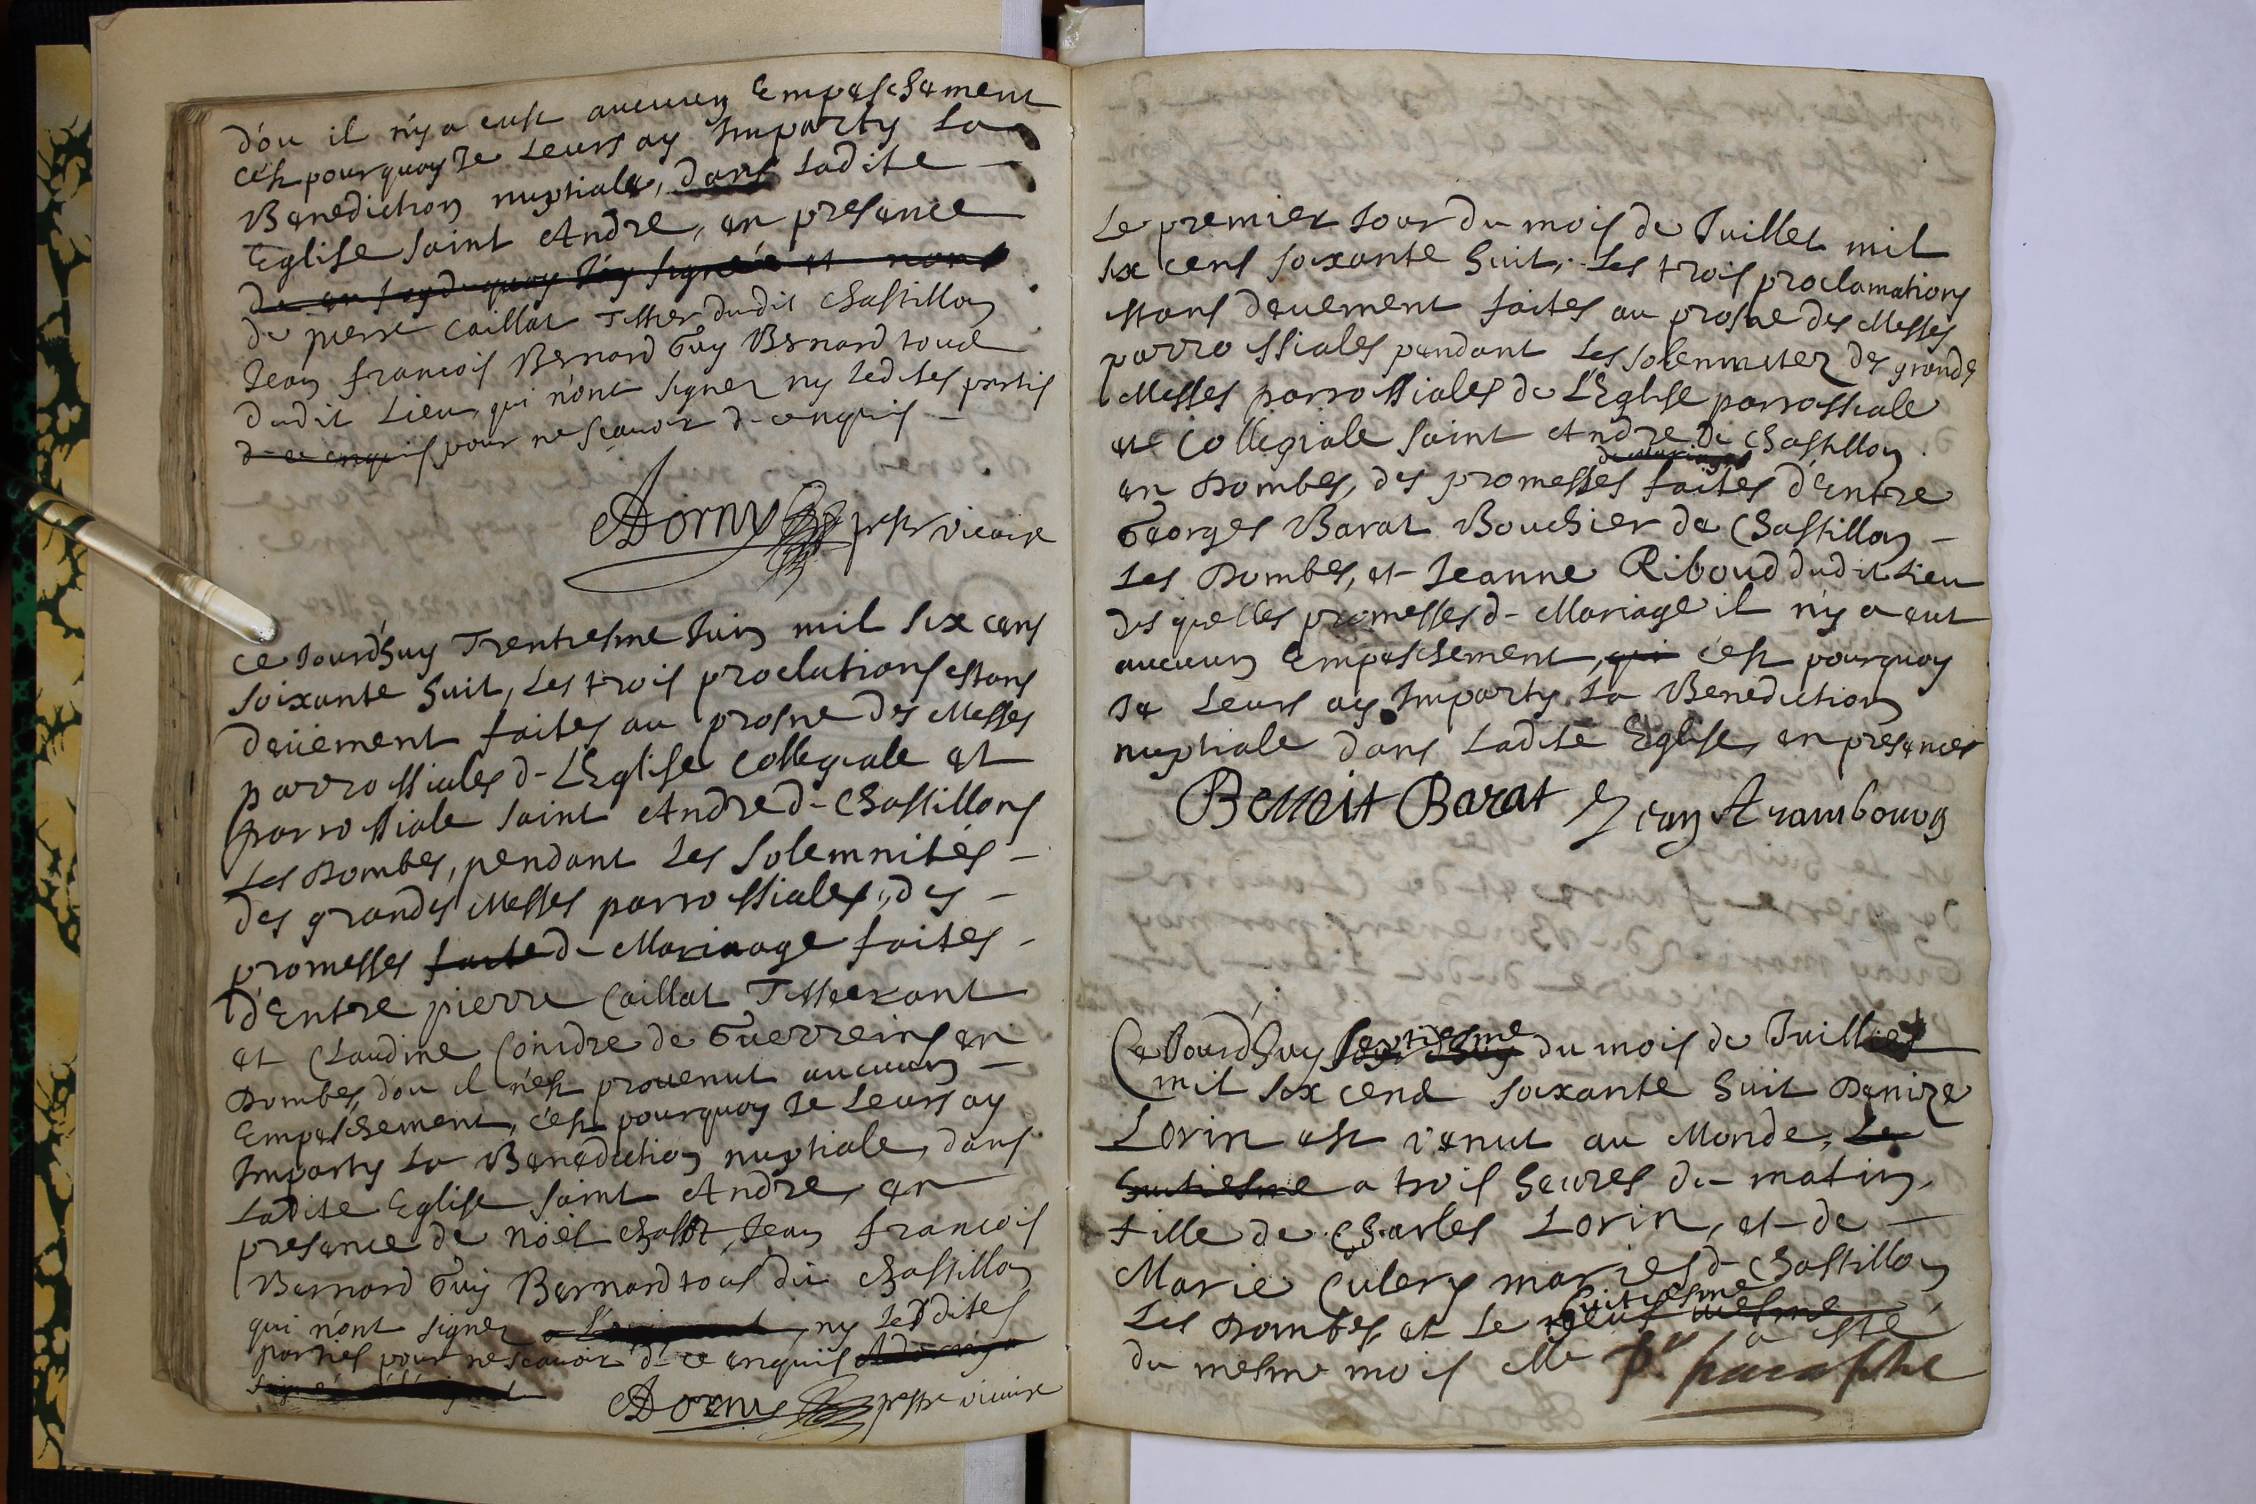 d'ou il n'y a eust aucuun Empeschement
c'est pourquoy Je Leurs ay Imparty La
Benediction nuptiale, dans Ladite
Eglise saint Andre, en presence
de en foy de quoy J'ay signée et nons
de pierre Caillat Tissier dudit Chastillon
Jean francois Bernard Guy Bernard tous
dudit Lieu qui n'ont signer ny Ledites partis
d-ce enquis pour ne sçauoir d-ce enquis
Dorny prestre vicaire
Ce Jourd'huy Trentiesme Juin mil six cens
soixante huit, Les trois proclations estans
deüement faites au prosne des Messes
parrossiales d-L'Eglise Collegiale et
parrossiale saint Andre d-Chastillons
Les Dombes, pendant Les solemnités
des grandes Messes parrossiales, des
promesses faite d-Mariaage faites
d'Entre pierre Caillat Tisserant
et Claudine Conidre de Guerreins en
Dombes d'ou il n'est prouenut aucuun
Empeschement, c'est pourquoy Je Leurs ay
Imparty La Benediction nuptiale, dans
Ladite Eglise saint Andre, en
presence de Noël Jean francois
Bernard Guy Bernard tous du Chastillon
qui n'ont signer ny Lesdites
parties pour ne scauoir d-ce enquis
Dorny prestre vicaire
Le premier Jour du mois de Juillet mil
six cens soixante huit, Les trois proclamations
estans deuement faites au prosne des Messes
parrossiales pendant Les solemnitez des grandes
Messes parrossiales de L'Eglise parrossiale
et Collegiale saint Andre de Chastillon
de mariages
en Dombes, des promesses faites d'Entre
Georges Barat Bouchier de Chastillon
Les Dombes, et Jeanne Riboud dudit Lieu
des quelles promesses d-Mariage il n'y a eut
aucuun Empeschement, qui c'est pourquoy
Je Leurs ay Imparty La Benediction
nuptiale dans Ladite Eglise, en presences
Benoit Barat Jean Arambourg
septiesme
Ce Jourd'huy du mois de Juilliet
mil six cens soixante huit Denize
Lorin est venut au Monde, Le
huitiesme a trois heures du matin,
fille de Charles Lorin, et de
Marie Culery mariés d-Chastillon
huitiesme
Les Dombes, et Le neufuiesme a esté
du mesme mois Me pr paraphe